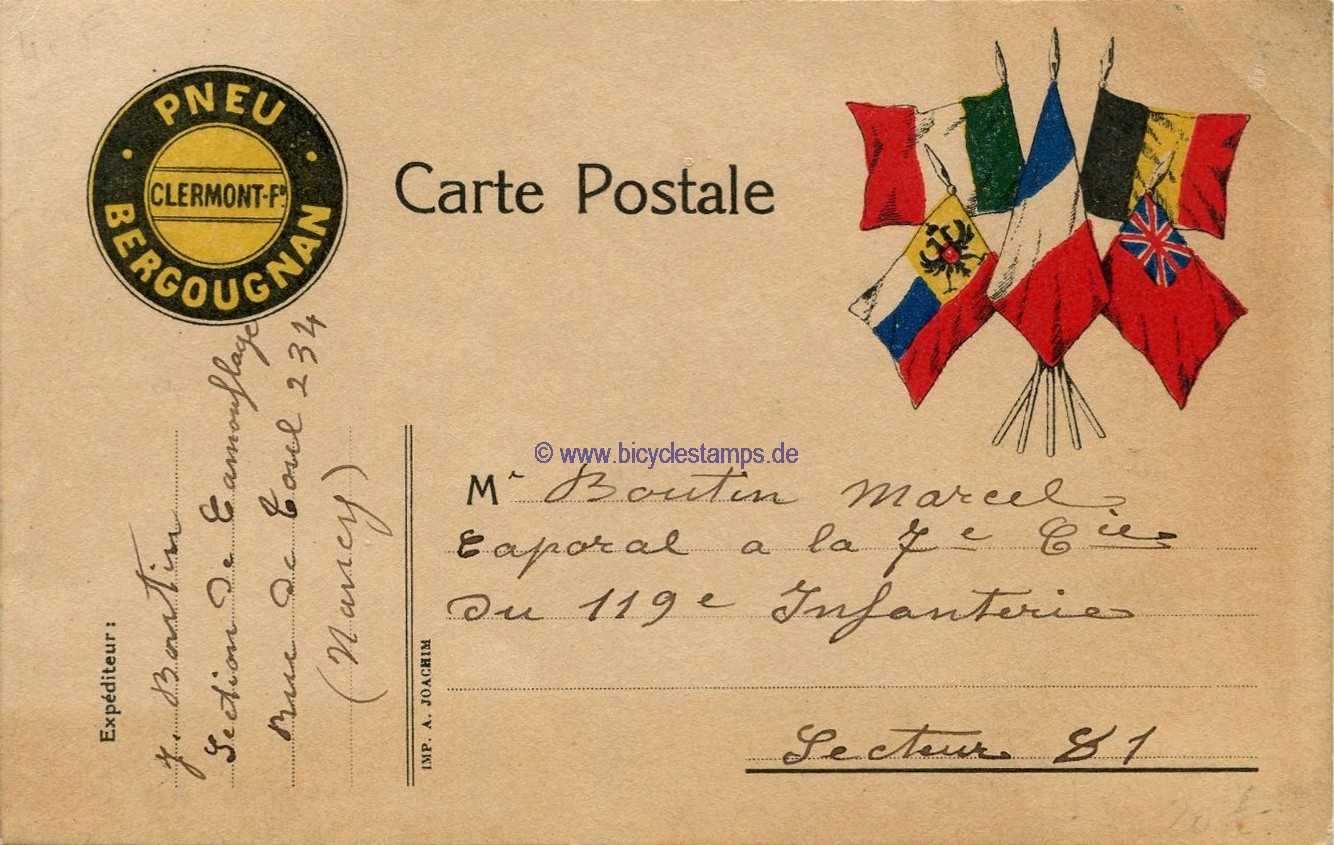 PNEU
CLERMONT-Fd.
BERGOUGNAN
Carte Postale
© www.bicyclestamps.de
Mr Boutin Marcel
Caporal a la 7e Cie
du 119e Infanterie
Secteur 81
Expéditeur :
J. Boutin
Section de Camouflage
Rue de Toul 234
(Nancy)
IMP. A. JOACHIM